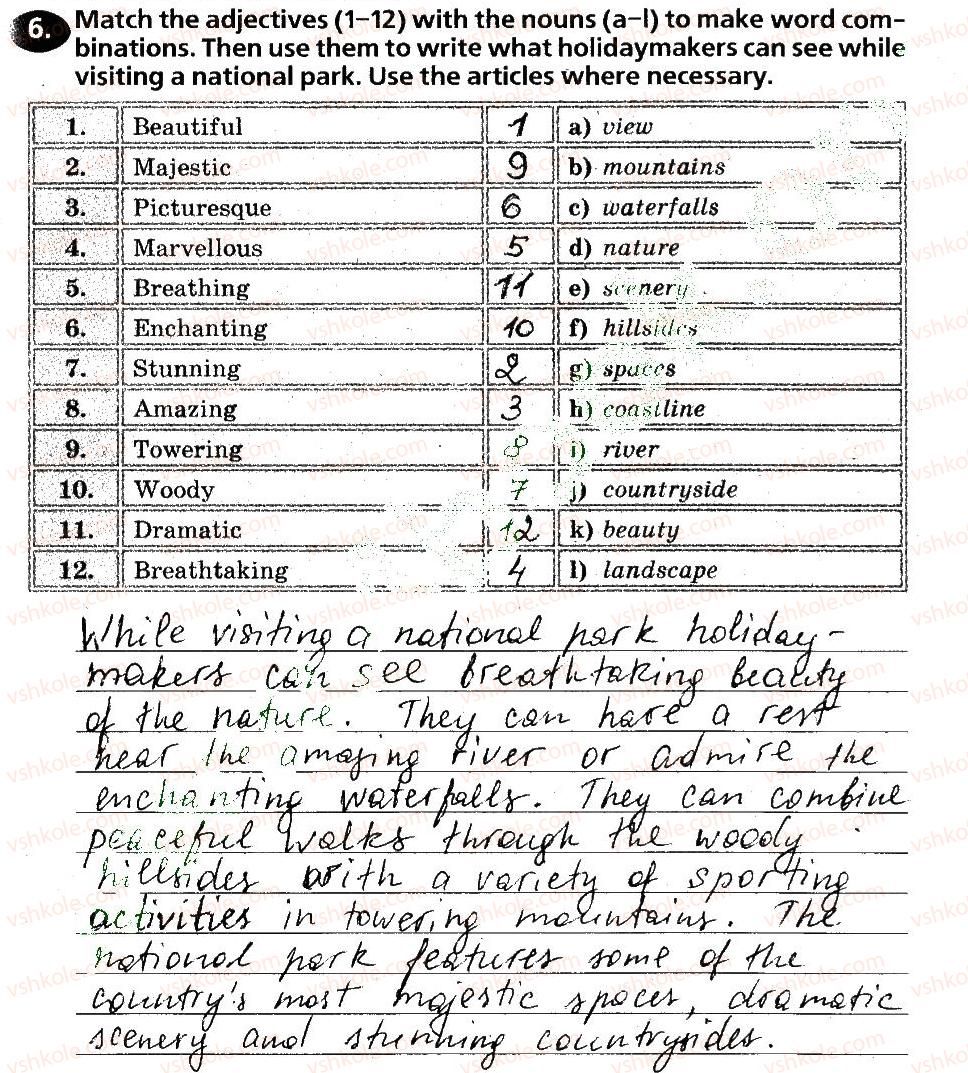 6. Match the adjectives (1–12) with the nouns (a–l) to make word com-
binations. Then use them to write what holidaymakers can see while
visiting a national park. Use the articles where necessary.
1. Beautiful 1 a) view
2. Majestic 9 b) mountains
3. Picturesque 6 c) waterfalls
4. Marvellous 5 d) nature
5. Breathing 11 e) scenery
6. Enchanting 10 f) hillsides
7. Stunning 2 g) spaces
8. Amazing 3 h) coastline
9. Towering 8 i) river
10. Woody 7 j) countryside
11. Dramatic 12 k) beauty
12. Breathtaking 4 l) landscape
While visiting a national park holiday-
makers can see breathtaking beauty
of the nature. They can have a rest
near the amazing river or admire the
enchanting waterfalls. They can combine
peaceful walks through the woody
hillsides with a variety of sporting
activities in towering mountains. The
national park features some of the
country's most majestic spaces, dramatic
scenery and stunning countrysides.